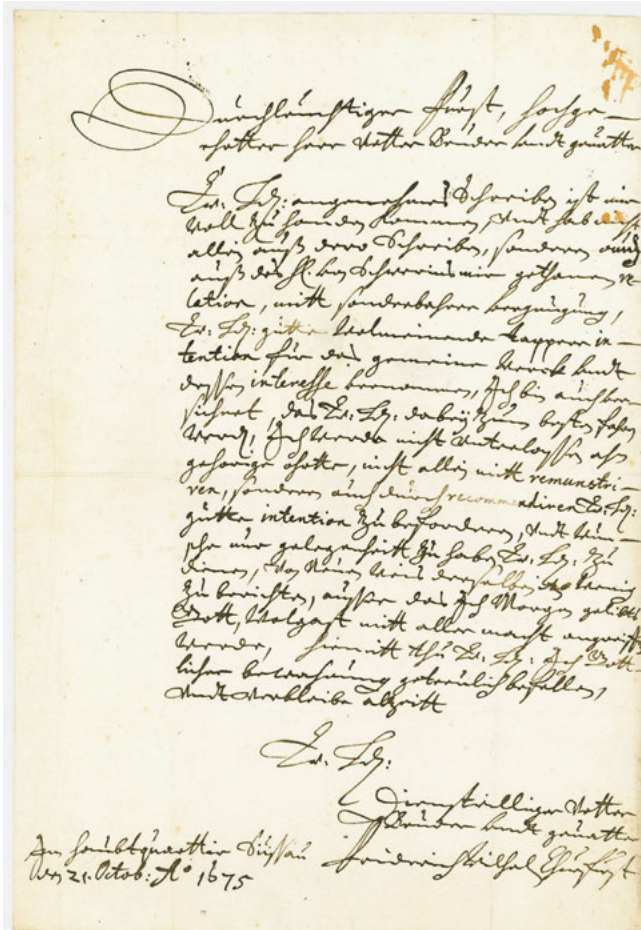 Durchleuchtiger Fürst, hochge-
ehrtter Herr Vetter Bruder undt gevatter
Ew: Ld: angenehmes Schreiben ist mir
woll zu handen kommen, undt hab nicht
allein auß dero Schreiben, sonderen auch
auß des H. von Schwerins mir gethanen re-
lation, mitt sonderbahrer vergnügung,
Ew: Ld: gutte wolmeinende tapffere in-
tention für das gemeine werck undt
dessen interesse vernommen, Ich bin auch ver-
sichret, das Ew: Ld: dabey zum besten fahren
werden, Ich werde nicht unterlassen ahn
gehörige ohrtte, nicht allein mitt remunstri-
ren, sondern auch durch recommendiren Ew: Ld:
gutte intention zu beforderen, undt wün-
sche nur gelegenheitt zu haben Ew: Ld: zu
dienen, von Neuen weis derselben wenig
zu berichten, ausser das Ich Morgen geliebts
Gott, Wolgast mitt aller macht angreiffen
werde, hiemitt thu Ew: Ld: Ich Gott-
licher bewahrung getreulich befellen,
undt verbleibe alzeitt
Ew: Ld:
Dienstwilliger Vetter
Bruder undt gevatter
Friderich Wilhelm Churfürst
Im haubtquartir
den 21. Octob: Ao 1675